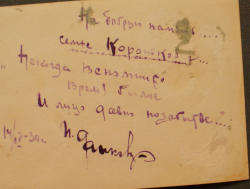 На добрую память...
семье Коротков...
"Некогда вспомнишь
Время былое
И лицо давно позабытое..."
14/II-30г.